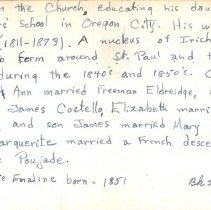 n the Church, educating his dau
rs' school in Oregon City. His w
(1811-1873). A nucleus of Irish
o form around St. Paul and
during the 1840's and 1850's. C
Ann married Freeman Eldredge,
James Costello, Elizabeth marri
and son James married Mary
arguerite married a French desce
e Poujade.
Emaline born - 1851 Bk 2